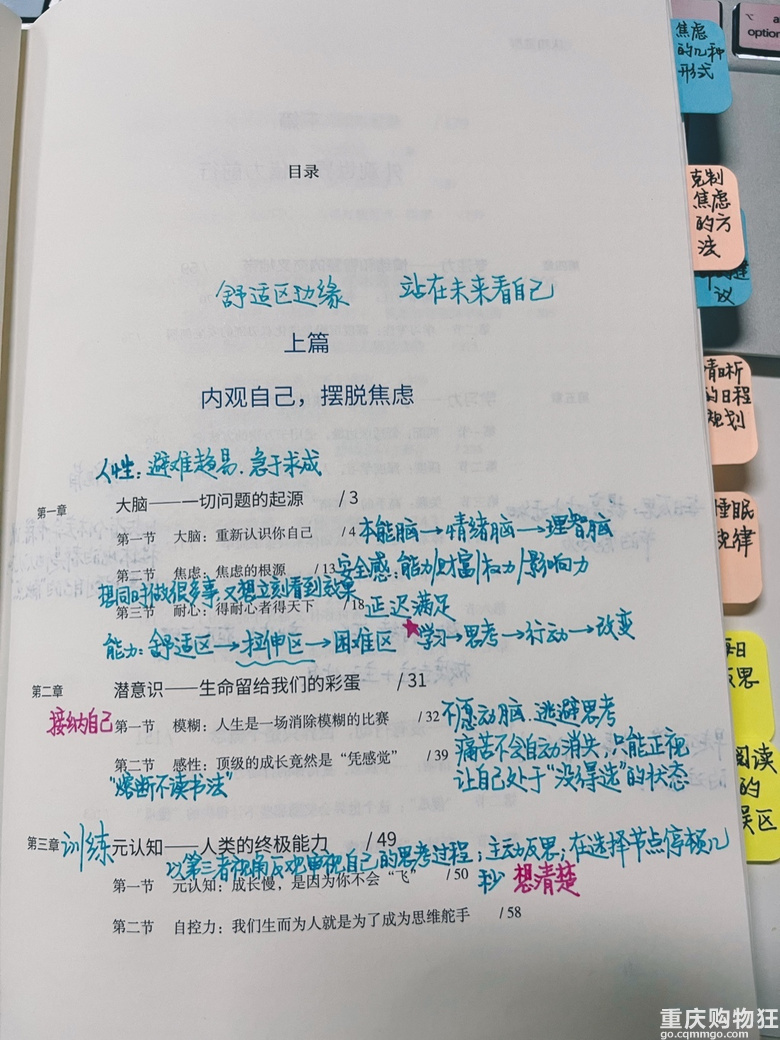 option
焦虑
的几种
形式
目录
克制
焦虑
的方
法
建
议
舒适区边缘 站在未来看自己
上篇
内观自己，摆脱焦虑
清晰
的日程
规划
人性：避难趋易．急于求成
第一章 大脑——一切问题的起源 / 3
第一节 大脑：重新认识你自己 / 4 本能脑→情绪脑→理智脑
第二节 焦虑：焦虑的根源 / 13 安全感：能力/财富/权力/影响力
想同时做很多事，又想立刻看到效果
第三节 耐心：得耐心者得天下 / 18 延迟满足
能力：舒适区→拉伸区→困难区 ★学习→思考→行动→改变
睡眠
规律
第二章 潜意识——生命留给我们的彩蛋 / 31
接纳自己 第一节 模糊：人生是一场消除模糊的比赛 / 32 不愿动脑．逃避思考
第二节 感性：顶级的成长竟然是“凭感觉” / 39 痛苦不会自动消失，只能正视
“熔断不读书法” 让自己处于“没得选”的状态
每日
反思
阅读
的
误区
第三章 训练元认知——人类的终极能力 / 49
以第三者视角反观审视自己的思考过程；主动反思；在选择节点停顿几
第一节 元认知：成长慢，是因为你不会“飞” / 50 秒 想清楚
第二节 自控力：我们生而为人就是为了成为思维舵手 / 58
重庆购物狂
go.cqmmgo.com